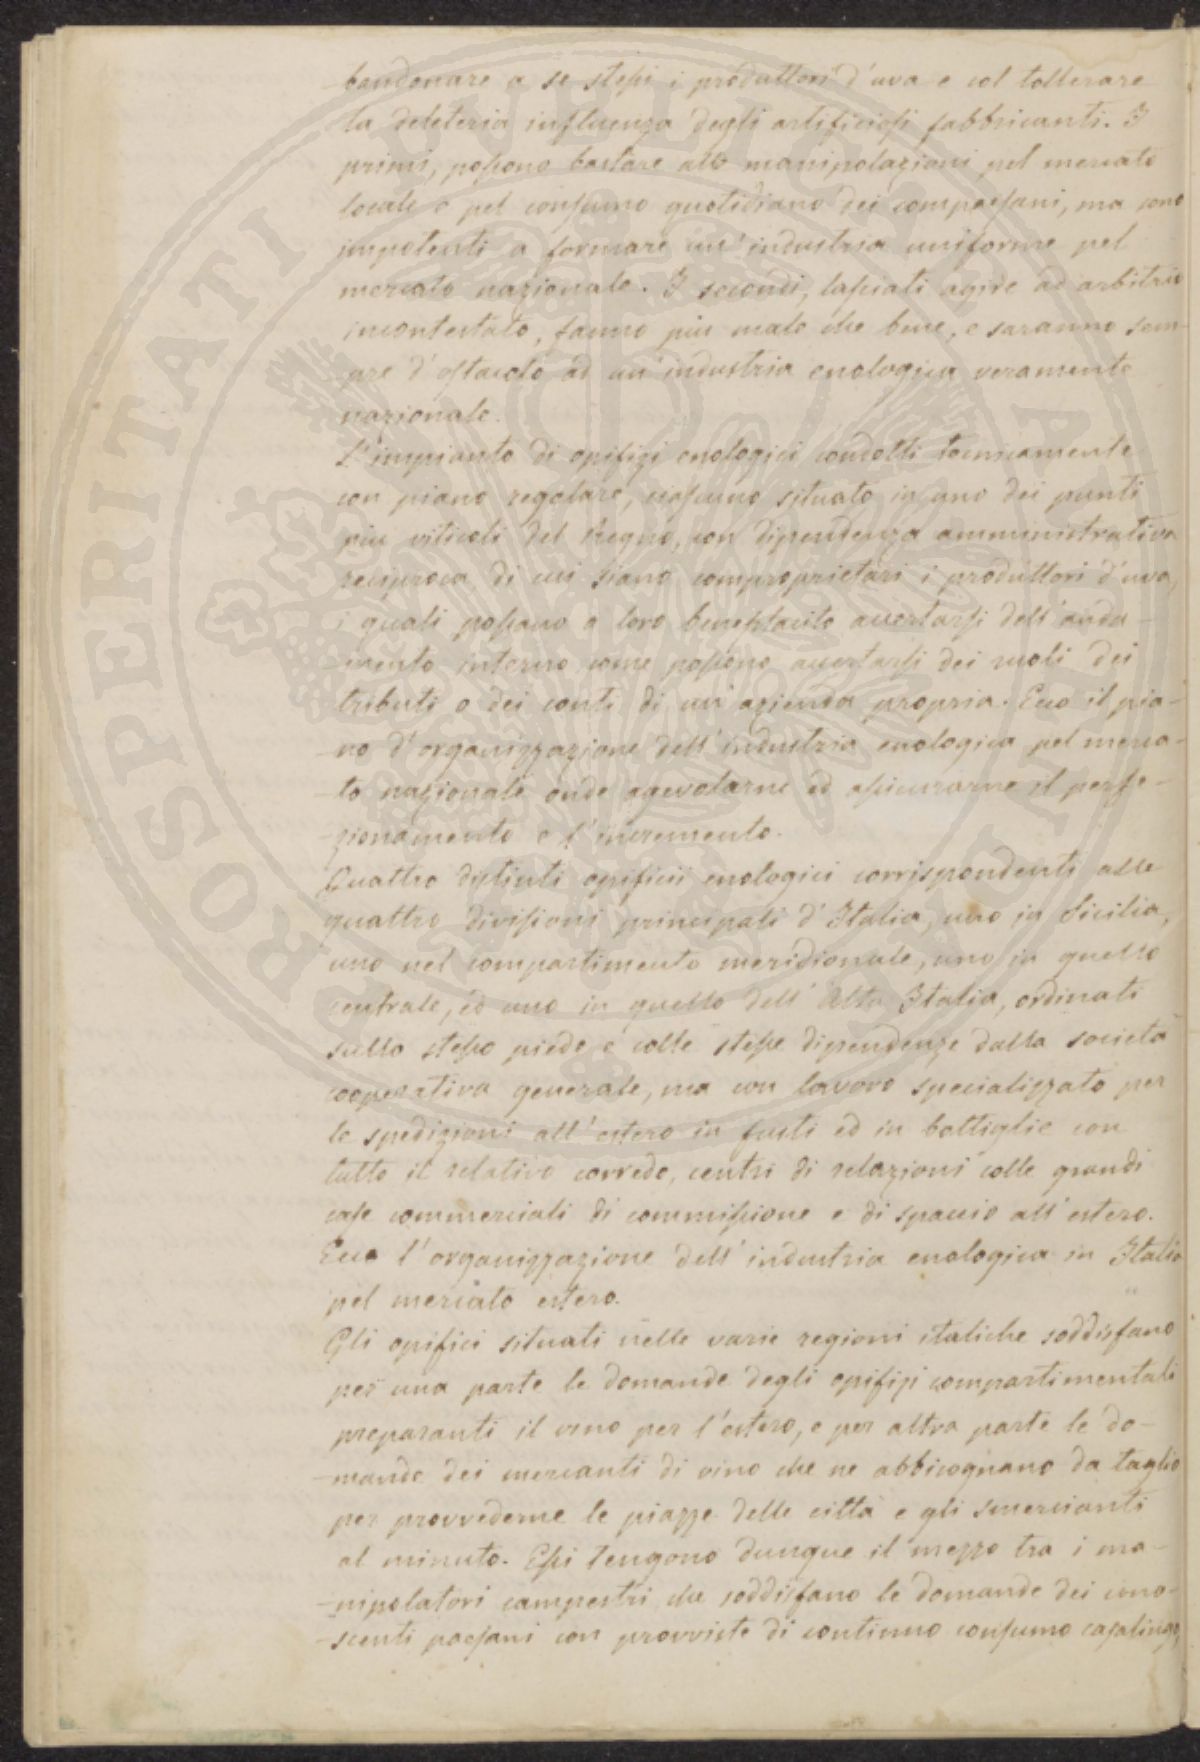 bandonare a se stessi i produttori d'uva e col tollerare
la deleteria influenza degli artificiosi fabbricanti. I
primi, possono bastare alle manipolazioni pel mercato
locale e pel consumo quotidiano dei compaesani, ma sono
impotenti a formare un'industria uniforme pel
mercato nazionale. I secondi, lasciati agire ad arbitrio
incontestato, fanno più male che bene, e saranno sem-
pre d'ostacolo ad un'industria enologica veramente
nazionale.
L'impianto di opifizi enologici condotti tecnicamente
con piano regolare, ciascuno situato in uno dei punti
più viticoli del Regno, con dipendenza amministrativa
reciproca, di cui siano comproprietari i produttori d'uva,
i quali possano a loro beneplacito accertarsi dell'anda-
-mento interno come possono accertarsi dei ruoli dei
tributi o dei conti di un'azienda propria. Ecco il pia-
-no d'organizzazione dell'industria enologica pel merca-
-to nazionale onde agevolarne ed assicurarne il perfe-
zionamento e l'incremento.
Quattro distinti opificii enologici corrispondenti alle
quattro divisioni principali d'Italia, uno in Sicilia,
uno nel compartimento meridionale, uno in quello
centrale, ed uno in quello dell'Alta Italia, ordinati
sullo stesso piede e colle stesse dipendenze dalla società
cooperativa generale, ma con lavoro specializzato per
le spedizioni all'estero in fusti ed in bottiglie con
tutto il relativo corredo, centri di relazioni colle grandi
case commerciali di commissione e di spaccio all'estero.
Ecco l'organizzazione dell'industria enologica in Italia
pel mercato estero.
Gli opifici situati nelle varie regioni italiche soddisfano
per una parte le domande degli opifizi compartimentali
preparanti il vino per l'estero, e per altra parte le do-
-mande dei mercanti di vino che ne abbisognano da taglio
per provvederne le piazze delle città e gli smercianti
al minuto. Essi tengono dunque il mezzo tra i ma-
-nipolatori campestri che soddisfano le domande dei cono-
-scenti paesani con provviste di continuo consumo casalingo,
PROSPERITATI PUBLICAE AUGENDAE